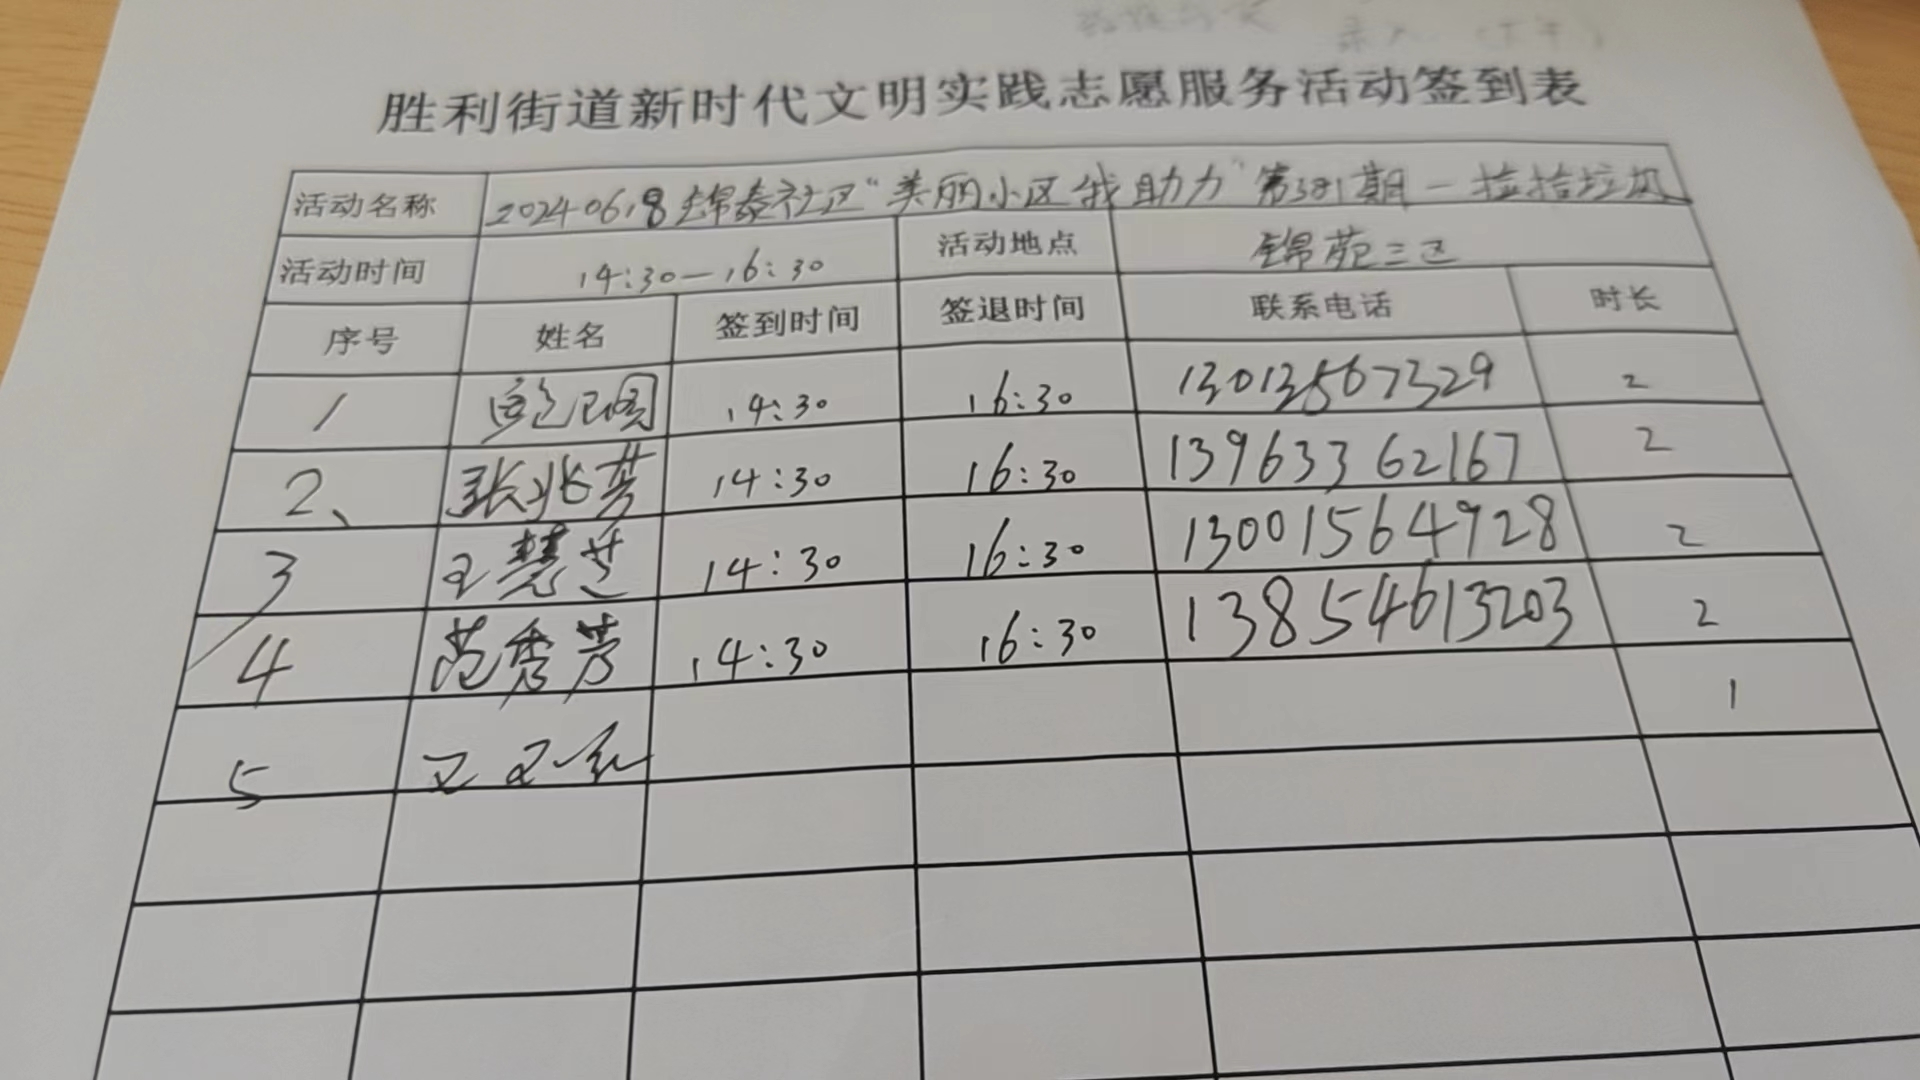 胜利街道新时代文明实践志愿服务活动签到表
活动名称 20240618锦泰社区“美丽小区我助力”第381期一捡拾垃圾
活动时间 14:30—16:30 活动地点 锦苑三区
序号 姓名 签到时间 签退时间 联系电话 时长
1 14:30 16:30 13013567329 2
2、 张兆芳 14:30 16:30 13963362167 2
3 王慧芝 14:30 16:30 13001564928 2
4 范秀芳 14:30 16:30 13854613203 2
1
5 王